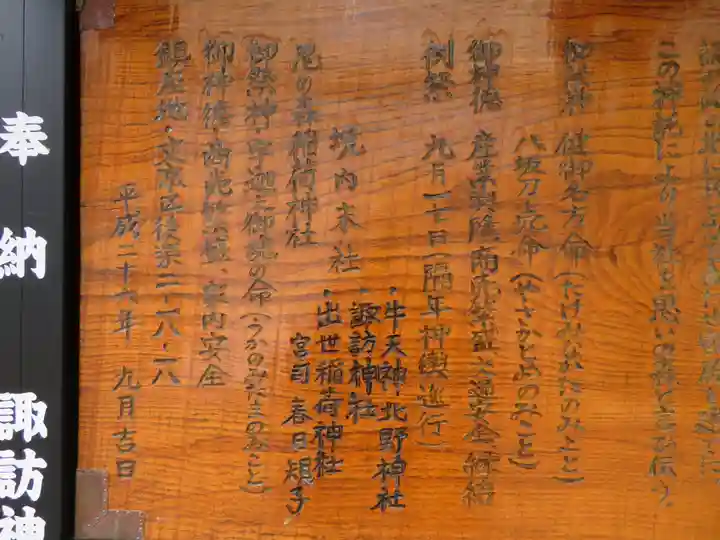 この神託により当社を思いの森と言ひ伝う。
御祭神 健御名方命(たけみなかたのみこと)
八坂刀売命(やさかとめのみこと)
御神徳 産業興隆、商売繁盛、交通安全、縁結
例祭 九月二七日(隔年神輿進行)
境内末社
・牛天神北野神社
・諏訪神社
・出世稲荷神社
宮司 春日規子
思の森稲荷神社
御祭神・宇迦之御魂の命(うかのみたまのみこと)
御神徳・商売繁盛、家内安全
鎮座地・文京区後楽二-一八-一八
平成二十六年 九月吉日
奉納
諏訪神